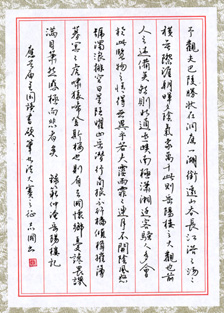 予觀夫巴陵勝狀在洞庭一湖銜遠山吞長江浩浩湯湯
橫無際涯朝暉夕陰氣象萬千此則岳陽樓之大觀也前
人之述備矣然則北通巫峽南極瀟湘遷客騷人多會
於此覽物之情得無異乎若夫霪雨霏霏連月不開陰風怒
號濁浪排空日星隱曜山岳潛形商旅不行檣傾楫摧薄
暮冥冥虎嘯猿啼登斯樓也則有去國懷鄉憂讒畏譏
滿目蕭然感極而悲者矣 錄范仲淹岳陽樓記
書法大賽之征